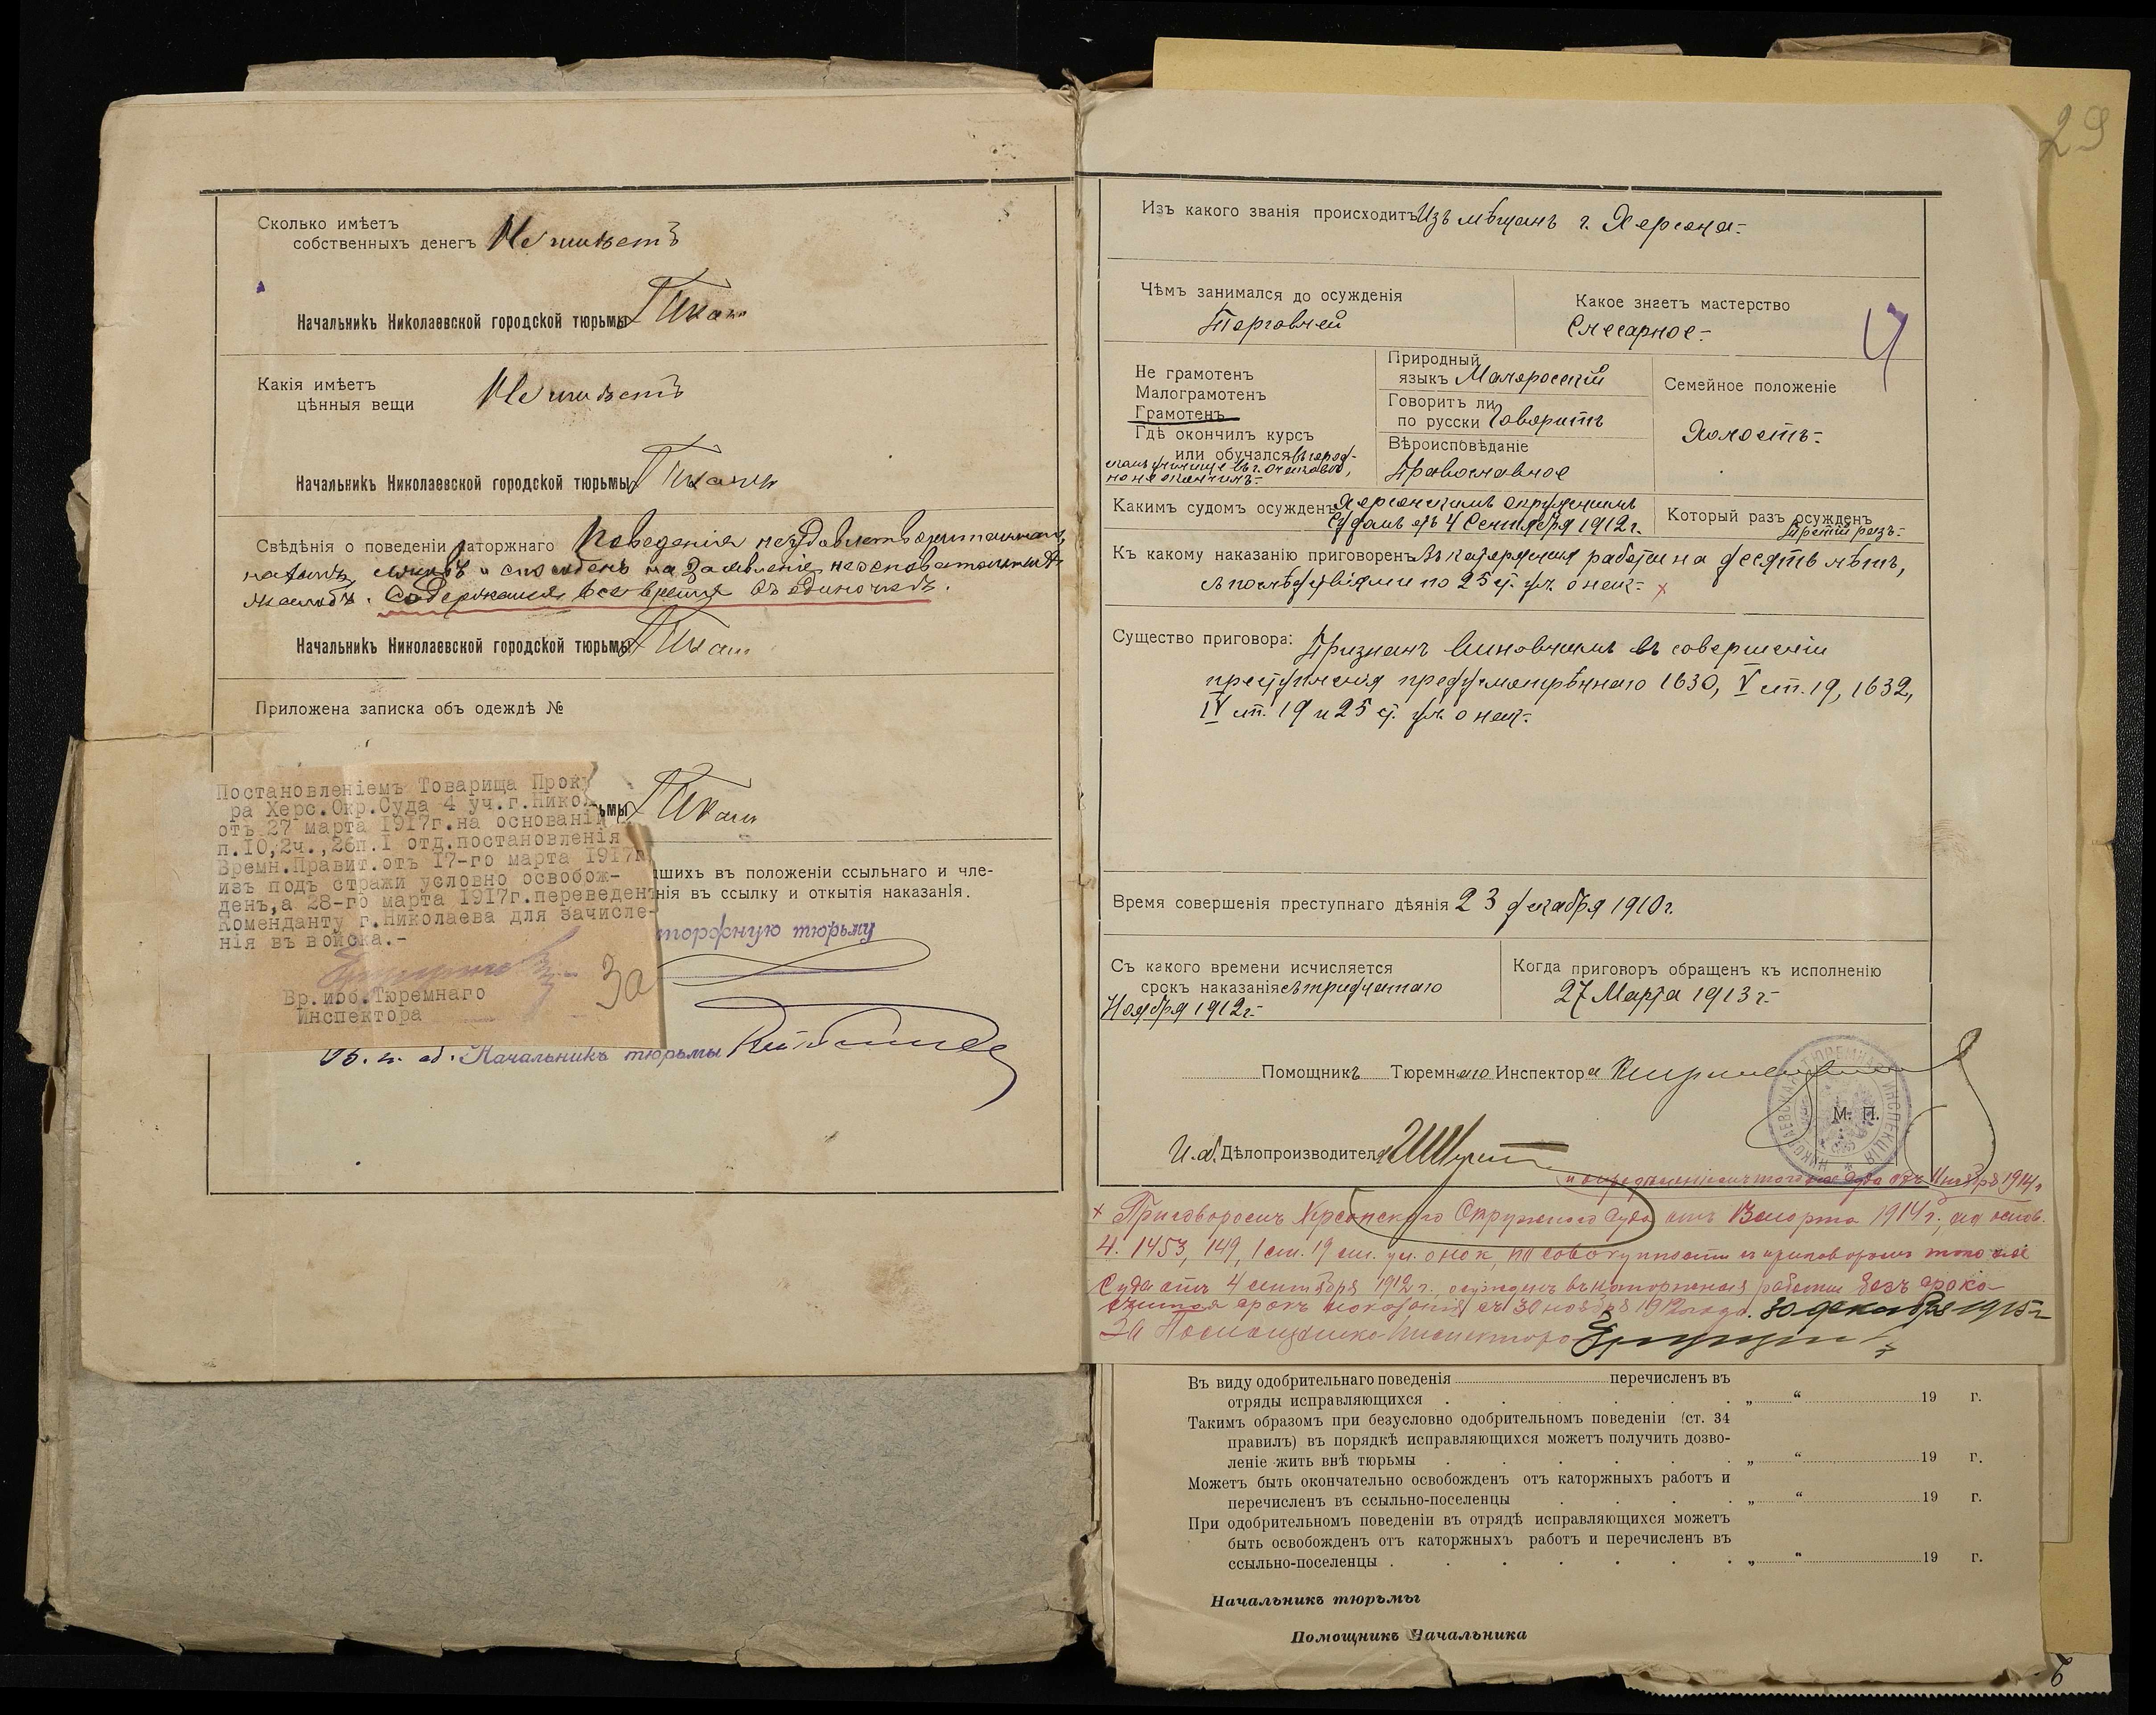 Сколько имѣетъ
собственныхъ денегъ Не имѣетъ
Начальникъ Николаевской городской тюрьмы
Какія имѣетъ
цѣнныя вещи Не имѣетъ
Начальникъ Николаевской городской тюрьмы
Свѣдѣнія о поведеніи каторжнаго Поведенія неудовлетворительнаго,
на заявленіе неосновательныхъ
жалобъ. Содержался все время въ одиночкѣ.
Начальникъ Николаевской городской тюрьмы
Приложена записка объ одеждѣ №
ьмы
Постановленіемъ Товарища Проку
ра Херс.Окр.Суда 4 уч.г.Никол
отъ 27 марта 1917г.на основаніи
п.10,2ч.,26п.I отд.постановленія
Времн.Правит.отъ 17-го марта 1917г
изъ подъ стражи условно освобож-
денъ,а 28-го марта 1917г.переведенъ
Коменданту г.Николаева для зачисле-
нія въ войска.-
Вр.исб.Тюремнаго
Инспектора
За
вшихъ въ положеніи ссыльнаго и чле-
нія въ ссылку и открытія наказанія.
торжную тюрьму
В. и. об. Начальникъ тюрьмы
29
Изъ какого званія происходитъ Изъ мѣщанъ г. Херсона-
Чѣмъ занимался до осужденія
Торговлей
Какое знаетъ мастерство
Слесарное-
Не грамотенъ
Малограмотенъ
Грамотенъ
Гдѣ окончилъ курсъ
или обучался въ город-
скомъ училищѣ въ г. Очаковѣ,
но не окончилъ-
Природный
языкъ Малоросскій
Говоритъ ли
по русски Говоритъ
Вѣроисповѣданіе
Православное
Семейное положеніе
Холостъ-
Какимъ судомъ осужденъ Херсонскимъ окружнымъ
судомъ отъ 4 Сентября 1912 г.
Который разъ осужденъ
Третій разъ-
Къ какому наказанію приговоренъ Въ каторжныя работы на десять лѣтъ,
съ послѣдствіями по 25 ст. ул. о нак.- х
Существо приговора: Признанъ виновнымъ въ совершеніи
преступленія предусмотрѣннаго 1630, V ст. 19, 1632,
IV ст. 19 и 25 ст. ул. о нак.-
Время совершенія преступнаго дѣянія 23 декабря 1910 г.
Съ какого времени исчисляется
срокъ наказанія съ тридцатаго
Ноября 1912 г.-
Когда приговоръ обращенъ къ исполненію
27 Марта 1913 г.-
Помощникъ Тюремнаго Инспектора
НИКОЛАЕВСКАЯ ТЮРЕМНАЯ ИНСПЕКЦІЯ
М. П.
И. об. Дѣлопроизводителя
1914 г.
х Приговоромъ Херсонскаго Окружнаго Суда отъ 13 марта 1914 г., на основ.
ч. 1453, 149, 1 ст. 19 ст. ул. о нак, по совокупности съ приговоромъ того же
Суда отъ 4 сентября 1912 г., осужденъ въ каторжныя работы безъ срока
считая срокъ наказанія съ 30 ноября 1912 года. 30 декабря 1915 г
За Помощника Инспектора
Въ виду одобрительнаго поведенія перечисленъ въ
отряды исправляющихся „ “ 19 г.
Такимъ образомъ при безусловно одобрительномъ поведеніи (ст. 34
правилъ) въ порядкѣ исправляющихся можетъ получить дозво-
леніе жить внѣ тюрьмы „ “ 19 г.
Можетъ быть окончательно освобожденъ отъ каторжныхъ работъ и
перечисленъ въ ссыльно-поселенцы „ “ 19 г.
При одобрительномъ поведеніи въ отрядѣ исправляющихся можетъ
быть освобожденъ отъ каторжныхъ работъ и перечисленъ въ
ссыльно-поселенцы „ “ 19 г.
Начальникъ тюрьмы
Помощникъ Начальника